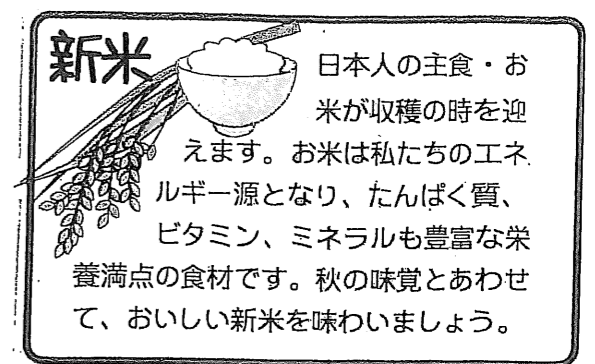 新米
日本人の主食・お
米が収穫の時を迎
えます。お米は私たちのエネ
ルギー源となり、たんぱく質、
ビタミン、ミネラルも豊富な栄
養満点の食材です。秋の味覚とあわせ
て、おいしい新米を味わいましょう。